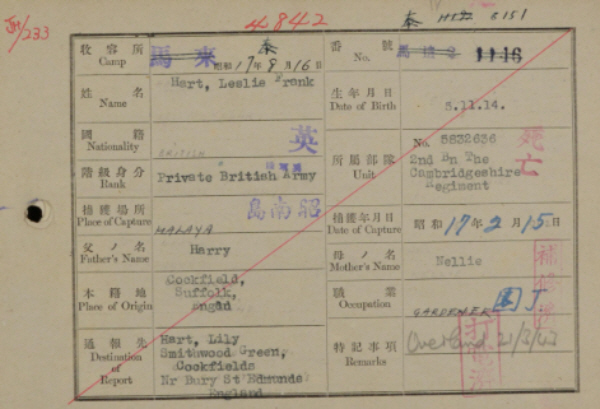 4842
泰
5151
/233
收容所
Camp
馬来
泰
昭和17年9月16日
番號
No.
1146
姓名
Name
Hart, Leslie Frank
生年月日
Date of Birth
5.11.14.
國籍
Nationality
BRITISH
英
所屬部隊
Unit
No. 5832636
2nd Bn The
Cambridgeshire
Regiment
死亡
階級身分
Rank
Private British Army
捕獲場所
Place of Capture
昭南島
MALAYA
捕獲年月日
Date of Capture
昭和17年2月15日
父ノ名
Father's Name
Harry
母ノ名
Mother's Name
Nellie
補修濟
本籍地
Place of Origin
Cockfield,
Suffolk,
職業
Occupation
GARDENER
通報先
Destination of Report
Hart, Lily
Smithwood Green,
Cockfields
Nr Bury St Edmunds
England
特記事項
Remarks
Overland 21/3/43